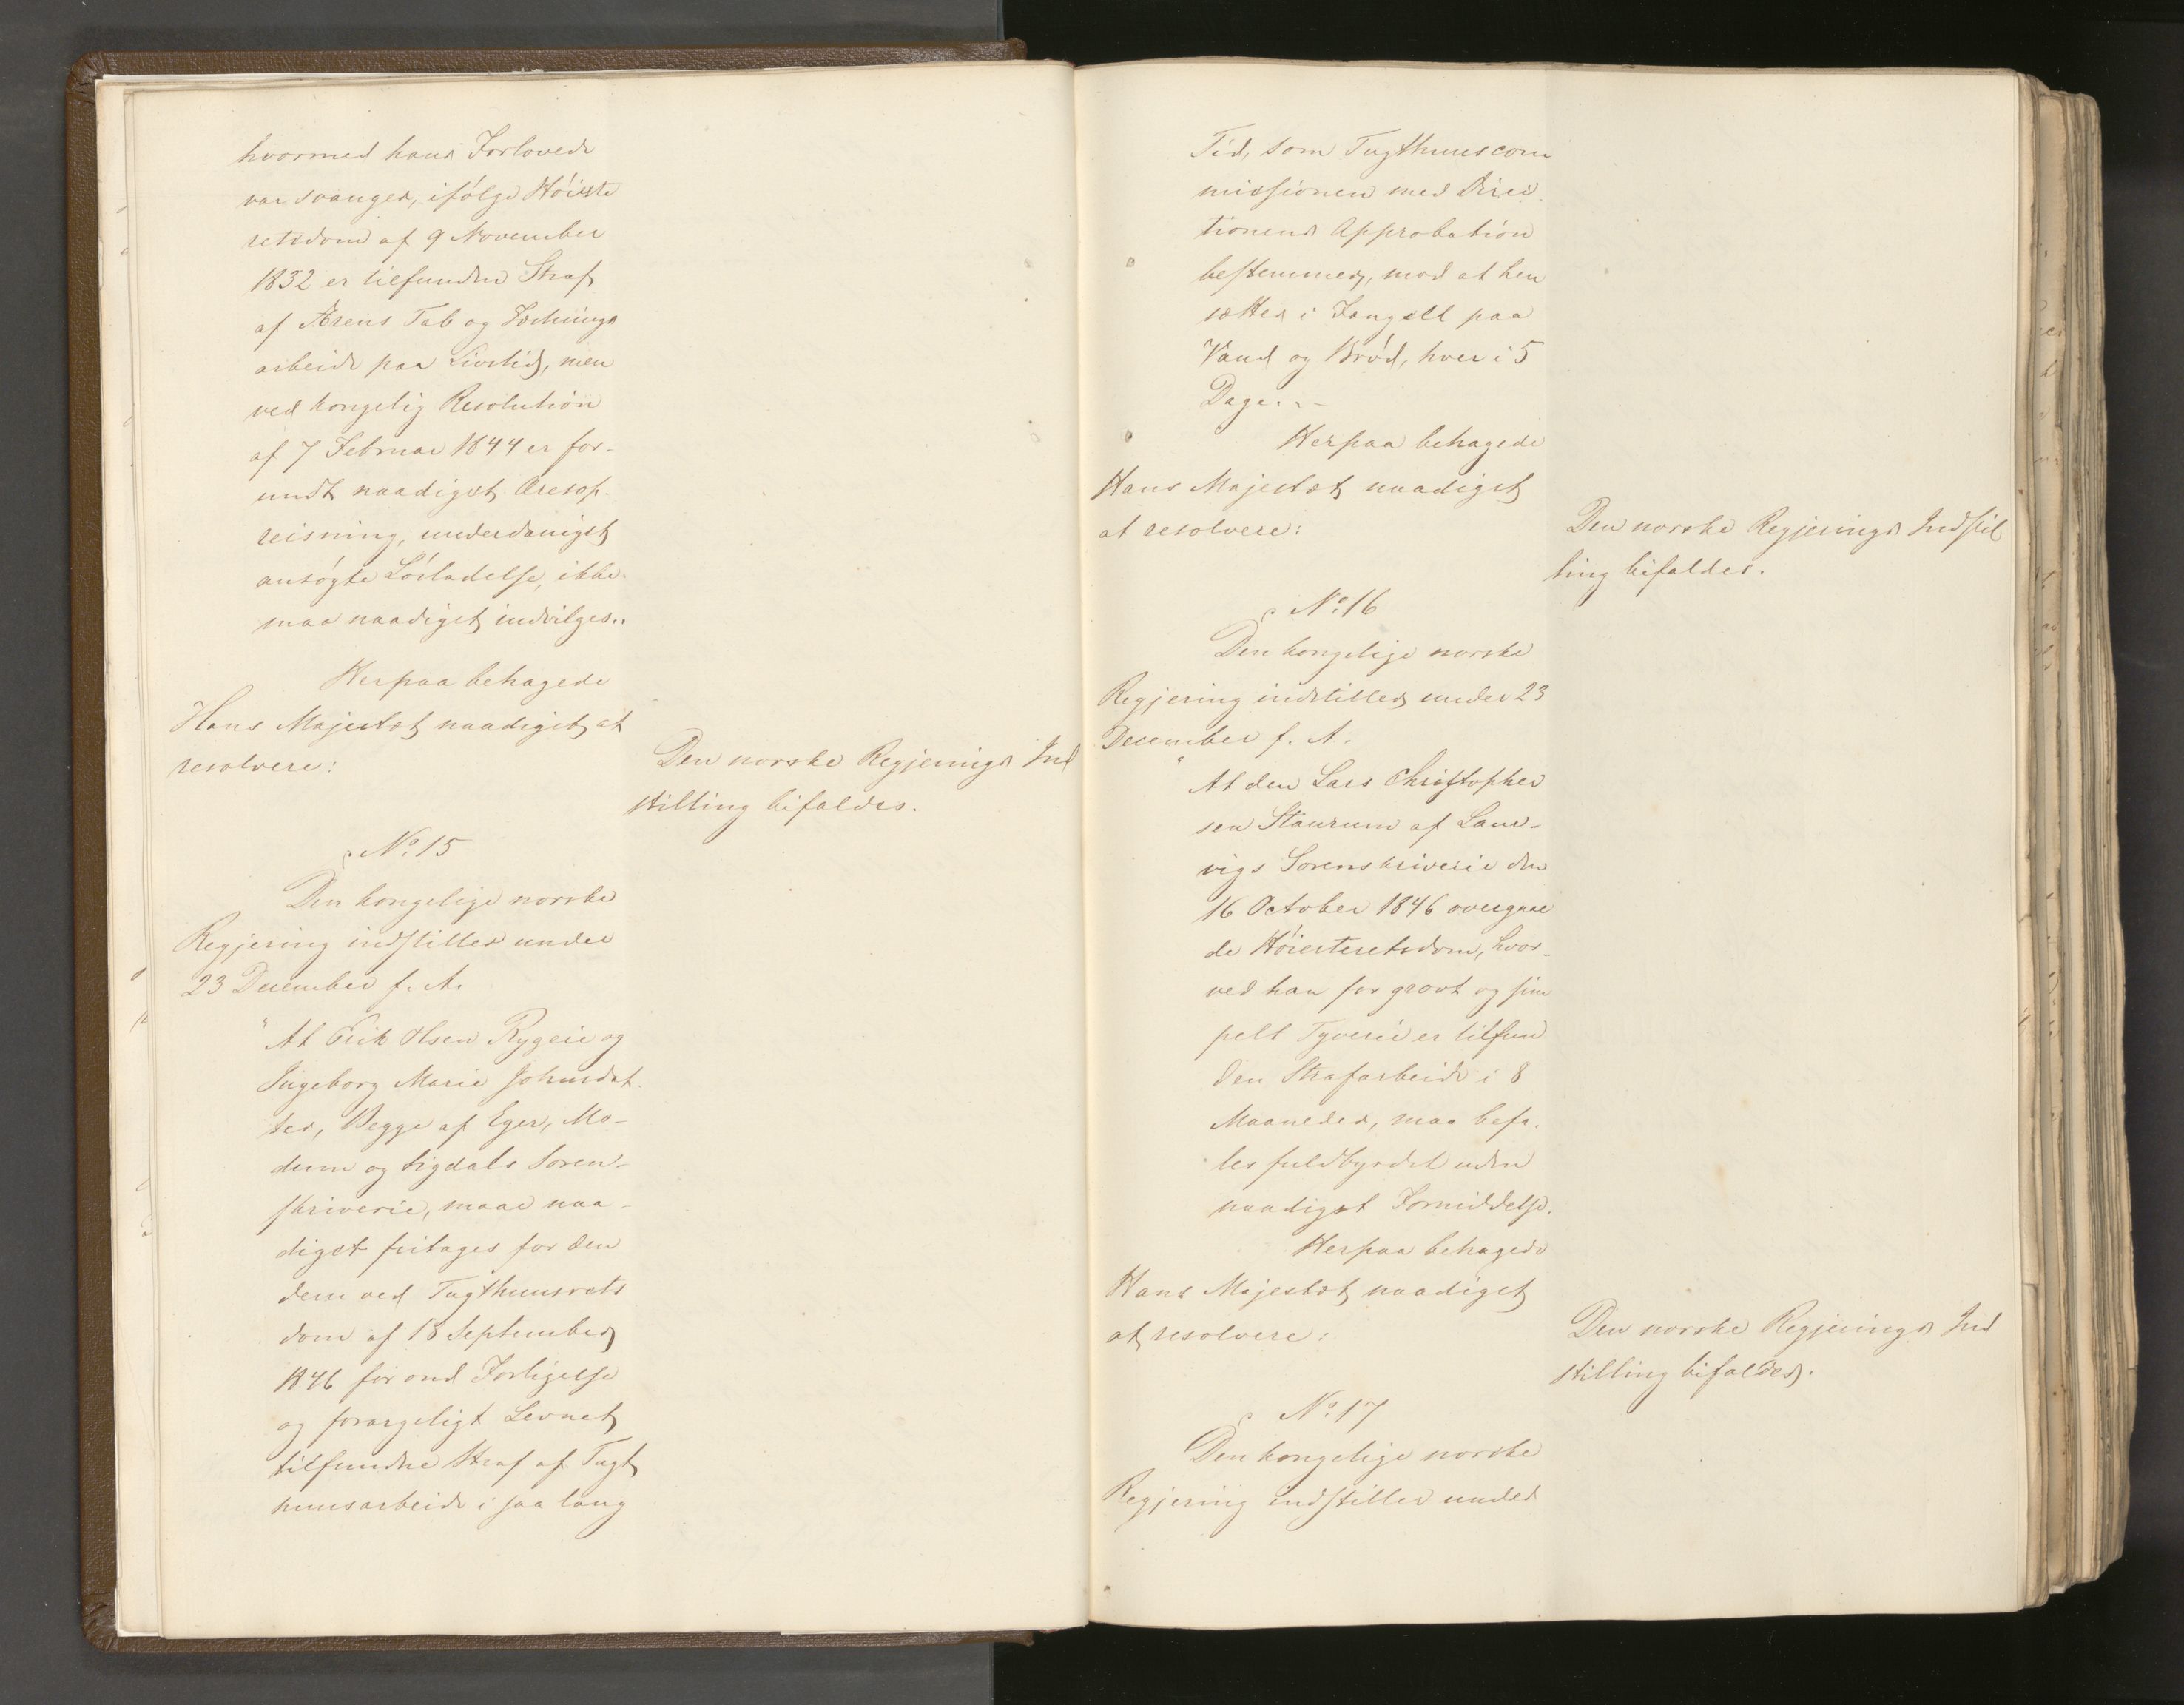 hvormed hans Forlovede
var svanger, ifölge Höieste
retsdom af 9 November
1832 er tilfunden Straf
af Ærens Tab og Fæstnings
arbeide paa Livstid, men
ved kongelig Resolution
af 7 Februar 1844 er for-
undt naadigst Æresop-
reisning, underdanigst
ansögte Lösladelse, ikke
maa naadigst indvilges..
Herpaa behagede
Hans Majestæt naadigst at
resolvere:
Den norske Regjerings Ind
stilling bifaldes.
No. 15
Den kongelige norske
Regjering indstiller under
23 December f. A.
"At Erik Olsen Rygeie og
Ingeborg Marie Johnsdat-
ter, Begge af Eger, Mo-
dum og Sigdals Soren-
skriverie, maae naa-
digst fritages for den
dem ved Tugthuusrets
dom af 18 September
1846 for ond Forligelse
og forargeligt Levnet
tilfundne Straf af Tugt
huusarbeide i saa lang
Tid, som Tugthuuscom
missionen med Direc-
tionens Approbation
bestemmer, mod at hen
sættes i Fængsel paa
Vand og Bröd, hver i 5
Dage..-
Herpaa behagede
Hans Majestæt naadigst
at resolvere:
Den norske Regjerings Indstil
ling bifaldes.
No. 16
Den kongelige norske
Regjering indstiller under 23
December f. A.
"At den Lars Christopher
sen Staurum af Laur-
vigs Sorenskriverie den
16 October 1846 overgaae
de Höiesteretsdom, hvor-
ved han for grovt og sim
pelt Tyverie er tilfun
den Strafarbeide i 8
Maaneder, maa befa-
les fuldbyrdet uden
naadigst Formildelse.
Herpaa behagede
Hans Majestæt naadigst
at resolvere:
Den norske Regjerings Ind
stilling bifaldes.
No. 17
Den kongelige norske
Regjering indstiller under